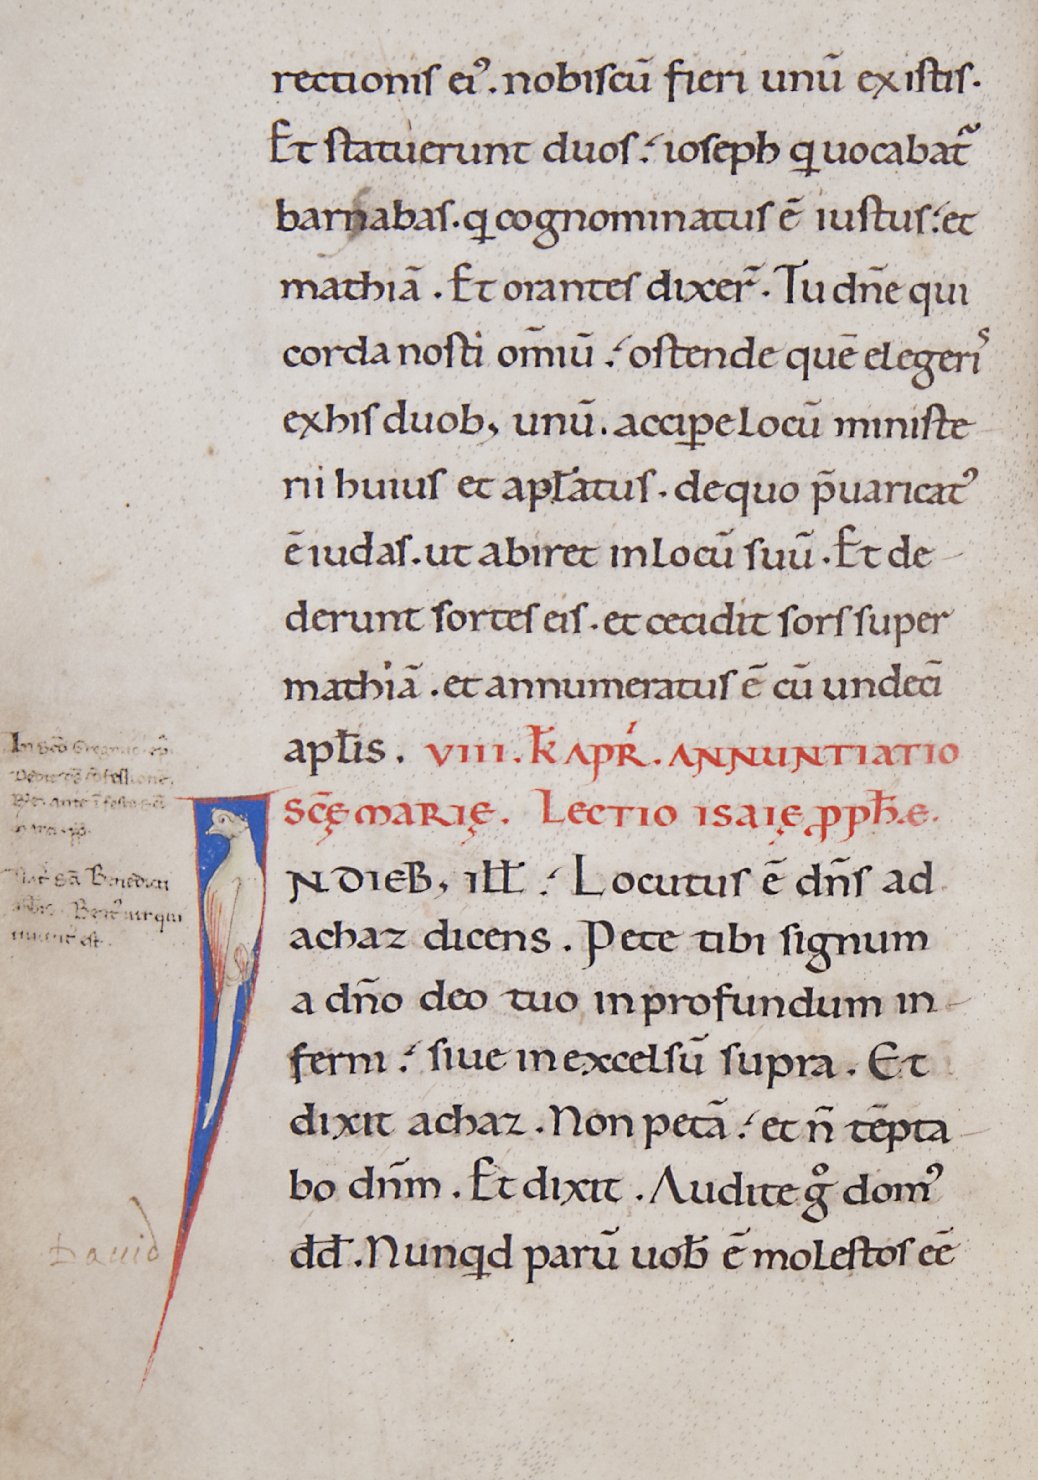 rectionis ei᾽. nobiscū fieri unū ex istis.
Et statuerunt duos. ioseph q uocabat̄
barnabas. q cognominatus ē iustus. et
mathiā. Et orantes dixer̄. Tu dn̄e qui
corda nosti om̄iū. ostende quē elegeris
ex his duob, unū. accipe locū ministe
rii huius et apl̄atus. de quo p̄uaricat᾽
ē iudas. ut abiret in locū suū. Et de
derunt sortes eis. et cecidit sors super
mathiā. et annumeratus ē cū undecī
apl̄is. VIII. K̄ APR̄. ANNUNTIATIO
SCĘ̄ MARIĘ. Lectio isaię p̱ph̄e.
In sc̄i Gregorii ep̄i
NDIEB, ill̄. Locutus ē dn̄s ad
Nat̄ sc̄i Benedicti
achaz dicens. Pete tibi signum
Bene᾽ uir qui
a dn̄o deo tuo in profundum in
ferni. siue in excelsū supra. Et
dixit achaz. Non petā. et n̄ tēpta
bo dn̄m. Et dixit. Audite gͦ dom᾽
Dauid
dd̄. Nunqd parū uob̄ ē molestos eē